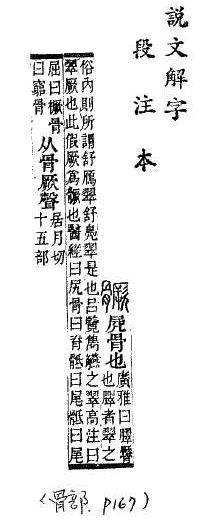 說文解字
段注本
𩪗 𡱂骨也廣雅曰臎髁也臎者翠之
俗內則所謂舒鴈翠舒鳧翠是也呂覽雋觾之翠高注曰
翠厥也此假厥爲𩪗也醫經曰尻骨曰脊骶曰尾骶曰尾
屈曰橛骨
曰窮骨
从骨厥聲
居月切
十五部
(骨部.p167)